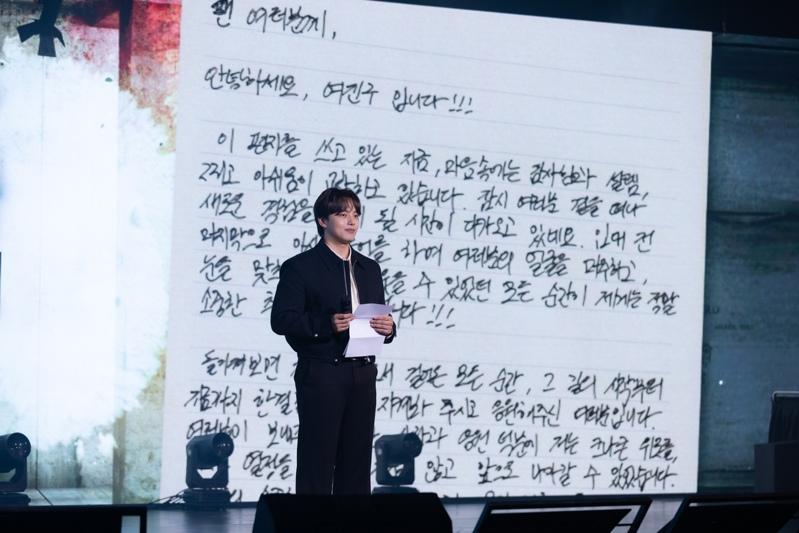 팬 여러분께,
안녕하세요, 여진구 입니다!!!
이 편지를 쓰고 있는 지금, 마음속에는 감사함과 설렘,
그리고 아쉬움이 있습니다. 잠시 여러분 곁을 떠나
새로운 경험을 될 시간이 다가오고 있네요. 입대 전
마지막으로 하며 여러분의 얼굴을 마주하고,
눈을 수 있었던 모든 순간이 제게는 정말
소중한 !!!
돌이켜보면 모든 순간, 그 길의 시작부터
지금까지 주시고 응원해주신 여러분입니다.
여러분이 응원 덕분에 저는 크나큰 위로를,
열정을 않고 앞으로 나아갈 수 있었습니다.